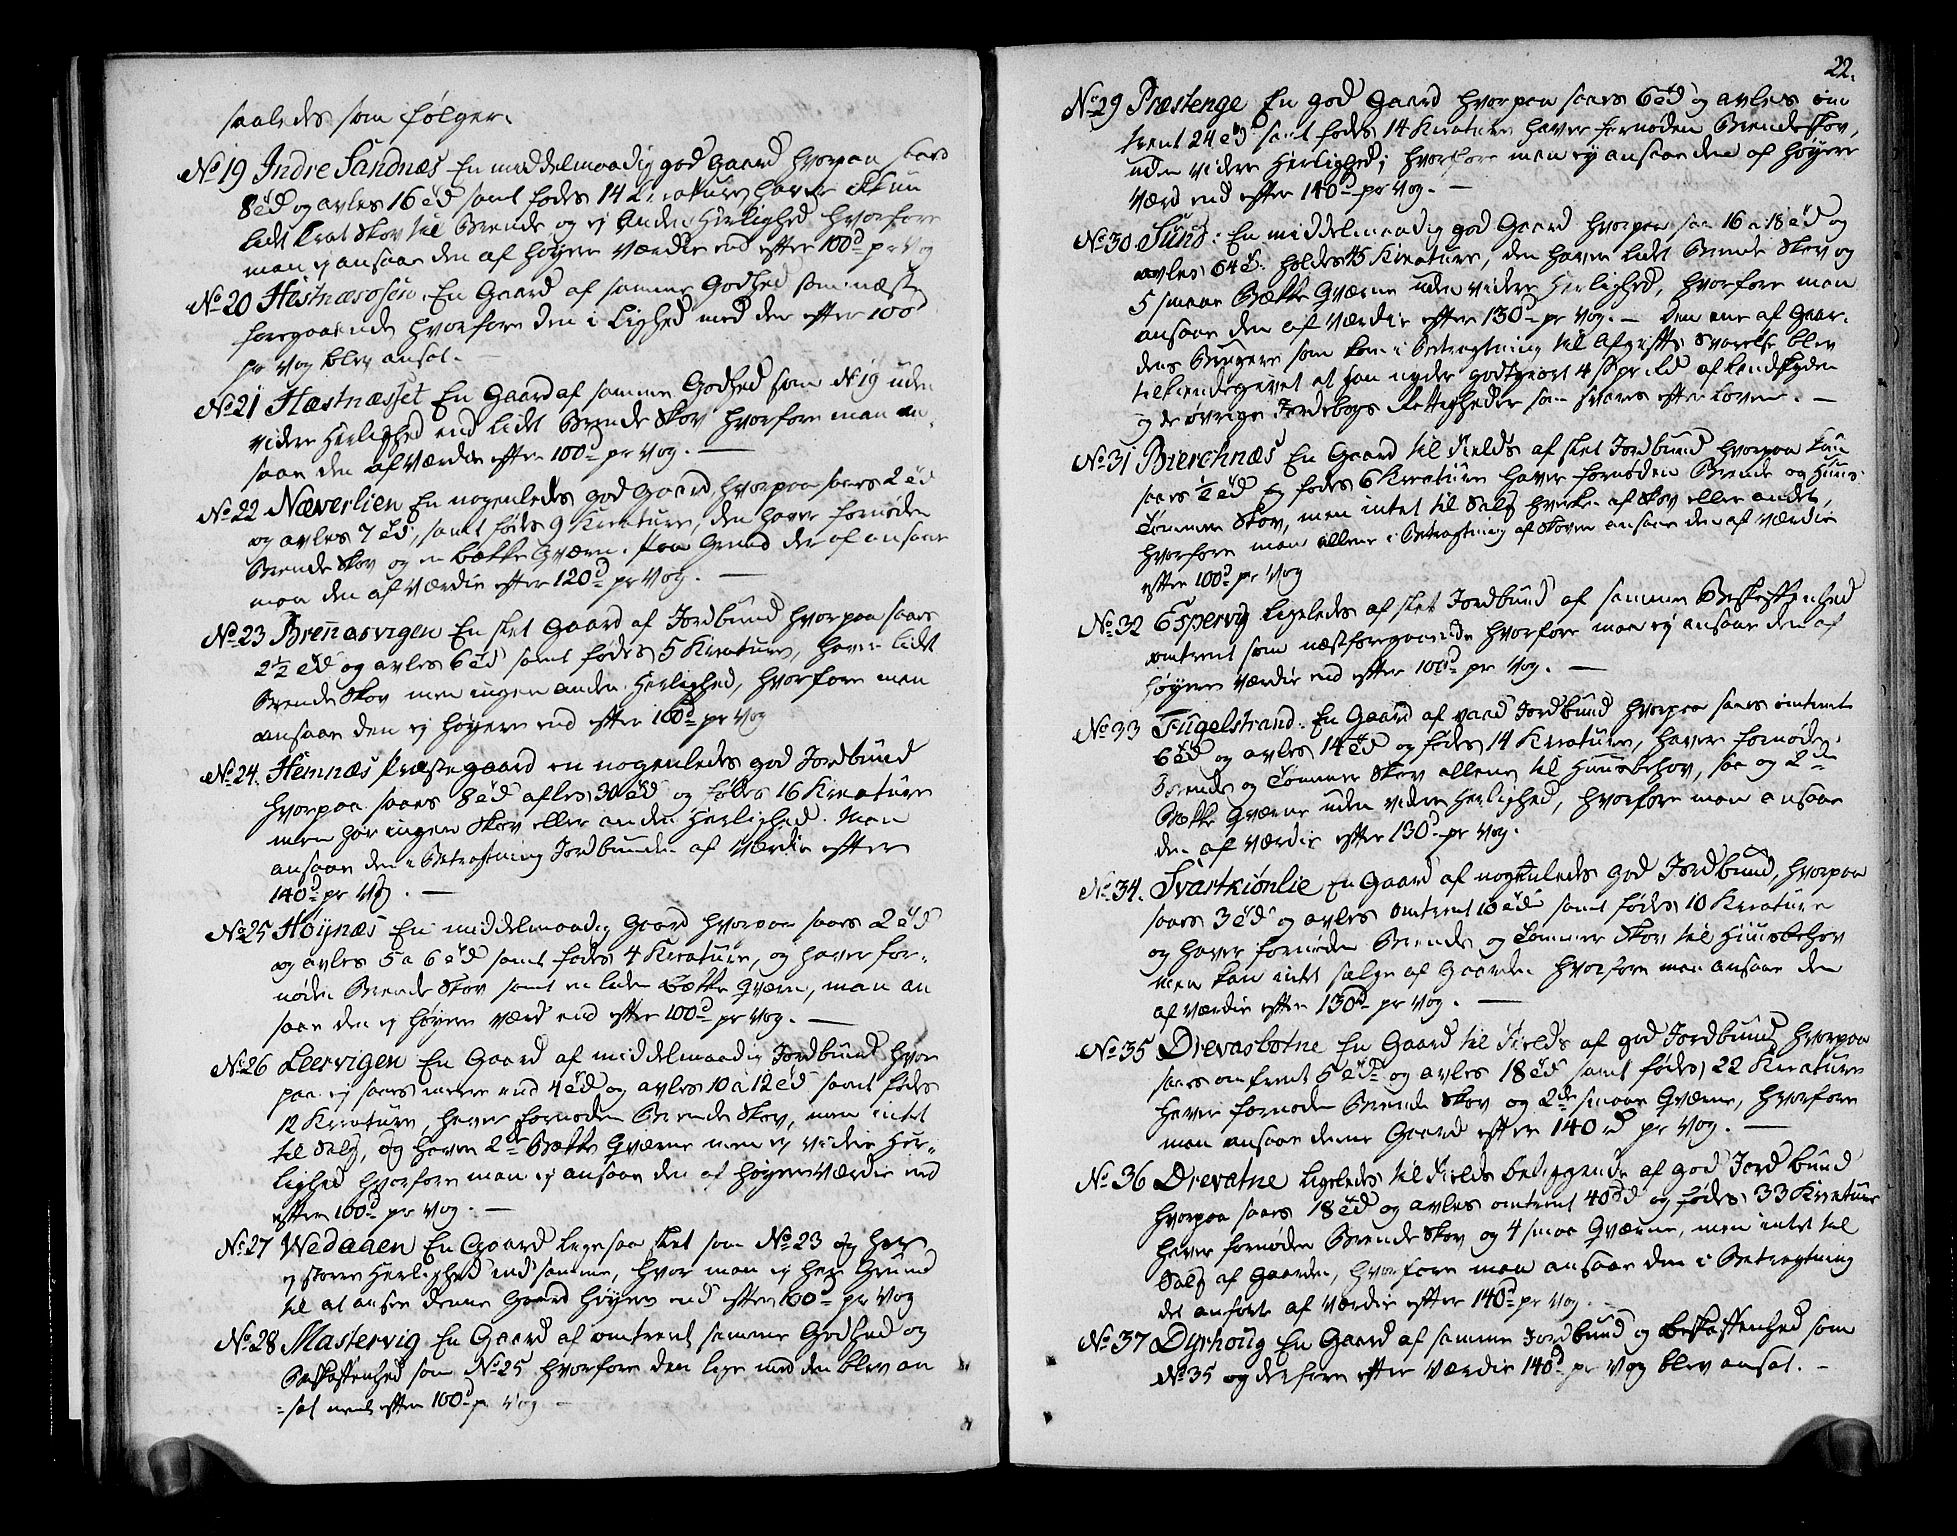 saaledes som følger.
No 19 Indre Sandnæs En middelmaadig god Gaard hvorpaa saaes
8 td og avles 16 td samt fødes 14 Kreature haver ikkun
lidt Krat Skov til Brende og ej Anden Herlighed hvorfore
man ej ansaae den af høyere Værdie end efter 100 d pr Vog
No 20 Hestnæsosen. En Gaard af samme Godhed som næst
foregaaende hvorfore den i Lighed med den efter 100 d
pr Vog blev ansat. —
No 21 Hæstnæsset En Gaard af samme Godhed som No 19 uden
videre Herlighed end lidt Brende Skov hvorfore man an
saae den af Værdie efter 100 d pr Vog. —
No 22 Næverlien En nogenledes god Gaard, hvorpaa saaes 2 td
og avles 7 td, samt fødes 9 Kreature, den haver fornøden
Brende Skov og en Bække Qværn. Paa Grund der af ansaae
man den af Værdie efter 120 d pr Vog. —
No 23 Brennesvigen En slet Gaard af Jordbund hvorpaa saaes
2 1/2 td og avles 6 td samt fødes 5 Kreature, haver lidt
Brende Skov men ingen anden Herlighed, hvorfore man
ansaae den ej høyere end efter 100 d pr Vog
No 24. Hemnæs Præstegaard en nogenledes god Jordbund
hvorpaa saaes 8 td afles 30 td og fødes 16 Kreature
men har ingen Skov eller anden Herlighed. Man
ansaae den i Betragtning Jordbunden af Værdie efter
140 d pr Vog. —
No 25 Høynæs En middelmaadig Gaard hvorpaa saaes 2 td
og avles 5 a 6 td samt fødes 4 Kreature, og haver for-
nøden Brende Skov samt en liden Bække Qværn, man an
saae den ej høyere værd end efter 100 d pr Vog. —
No 26 Leervigen En Gaard af middelmaadig Jordbund hvor
paa ej saaes mere end 4 td og avles 10 a 12 td samt fødes
12 Kreature, haver fornøden Brende Skov, men intet
til Salg, og haver 2de Bække Qværne men ej videre Her-
lighed hvorfore man ej ansaae den af høyere Værdie end
efter 100 d pr Vog. —
No 27 Wedaaen En Gaard ligesaa slet som No 23 og har
ej større Herlighed end samme, hvor man ej har Grund
til at ansee denne Gaard høyere end efter 100 d pr Vog
No 28 Mastervig En Gaard af omtrent samme Godhed og
Beskaffenhed som No 25 hvorfore den lige med den blev an
-sat nemlig efter 100 d pr Vog —
22.
No 29 Præstenge En god Gaard hvorpaa saaes 6 td og avles om
trent 24 td samt fødes 14 Kreature haver fornøden Brendeskov,
uden videre Herlighed, hvorfore man ej ansaae den af høyere
Værd end efter 140 d pr Vog. —
No 30 Sund. En middelmaadig god Gaard hvorpaa saaes 16 a 18 td og
avles 64 td. holdes 45 Kreature, den haver lidt Brende Skov og
5 smaae Bække Qværne uden videre Herlighed, hvorfore man
ansaae den af Værdie efter 130 d pr Vog. — Den ene af Gaar-
dens Brugere som kom i Betragtning til Afgifts Svarelse blev
tilkiendegivet at han nyder godtgiort 4 s pr rd af Landskylden
og de øvrige Jordebogs Rettigheder som svares efter Loven. —
No 31 Bierchnæs En Gaard til Fields af slet Jordbund hvorpaa kun
saaes 1/2 td og fødes 6 Kreature haver fornøden Brende og Huus-
Tømmer Skov, men intet til Salg hverken af Skov eller andet,
hvorfore man allene i Betragtning af Skoven ansaae den af Værdie
efter 100 d pr Vog
No 32 Espervig ligeledes af slet Jordbund af samme Beskaffenhed
omtrent som næstforegaaende hvorfore man ej ansaae den af
høyere Værdie end efter 100 d pr Vog. —
No 33 Fugelstrand. En Gaard af vaad Jordbund hvorpaa saaes omtrent
6 td og avles 14 td og fødes 14 Kreature, haver fornøden
Brende og Tømmer Skov allene til Huusbehov, saa og 2de
Bække Qværne uden videre Herlighed, hvorfore man ansaae
den af Værdie efter 130 d pr Vog.
No 34. Svartkiønlie En Gaard af nogenledes god Jordbund, hvorpaa
saaes 3 td og avles omtrent 10 td samt fødes 10 Kreature
og haver fornøden Brende og Tømmer Skov til Huusbehov
men kan intet sælge af Gaarden hvorfore man ansaae den
af Værdie efter 130 d pr Vog. —
No 35 Drevasbotne En Gaard til Fields af god Jordbund, hvorpaa
saaes omtrent 5 td og avles 18 td samt fødes 22 Kreature
haver fornøden Brende Skov og 2de smaae Qværne, hvorfore
man ansaae denne Gaard efter 140 d pr Vog. —
No 36 Drevatne ligeledes til Fields beliggende af god Jordbund
hvorpaa saaes 18 td og avles omtrent 40 td og fødes 33 Kreature
haver fornøden Brende Skov og 4 smaa Qværne, men intet til
Salg af Gaarden, hvorfore man ansaae den i Betragtning
det anførte af Værdie efter 140 d pr Vog. —
No 37 Dyrhoug En Gaard af samme Jordbund og beskaffenhed som
No 35 og derfore efter Værdie 140 d pr Vog blev ansat. —